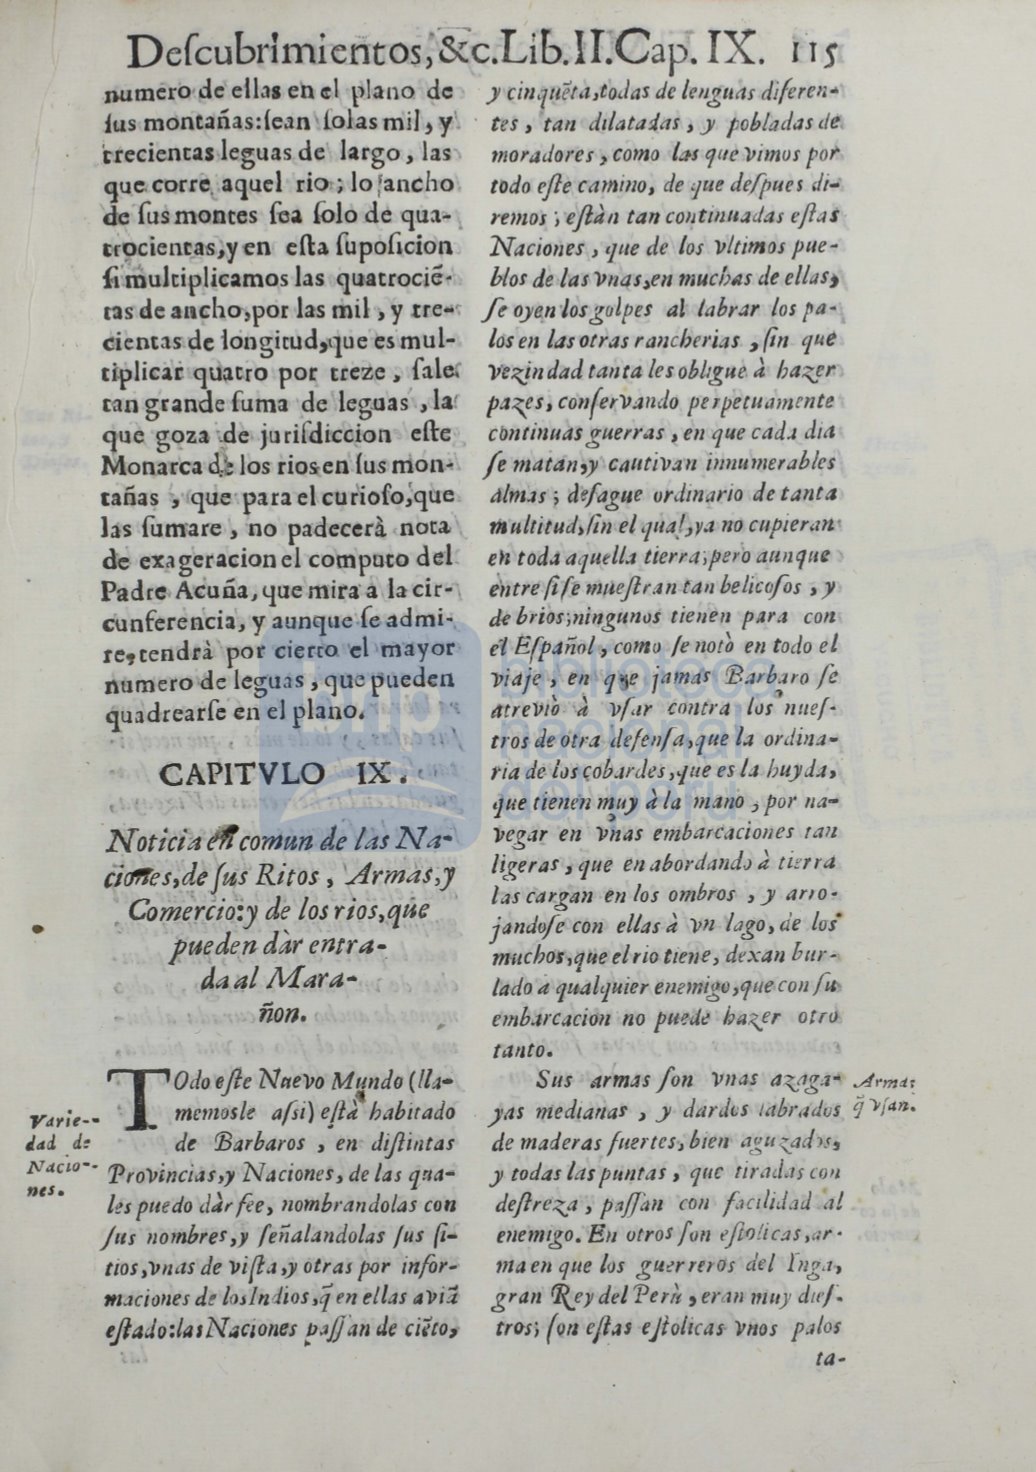 Deſcubrimientos, &c. Lib. II. Cap. IX. 115
numero de ellas en el plano de
ſus montañas: ſean ſolas mil, y
trecientas leguas de largo, las
que corre aquel rio; lo ancho
de ſus montes ſea ſolo de qua-
trocientas, y en eſta ſupoſicion
ſi multiplicamos las quatrociē-
tas de ancho, por las mil, y tre-
cientas de longitud, que es mul-
tiplicar quatro por treze, ſale
tan grande ſuma de leguas, la
que goza de juriſdiccion eſte
Monarca de los rios en ſus mon-
tañas, que para el curioſo, que
las ſumare, no padecerà nota
de exageracion el computo del
Padre Acuña, que mira a la cir-
cunferencia, y aunque ſe admi-
re, tendrà por cierto el mayor
numero de leguas, que pueden
quadrearſe en el plano.
CAPITVLO IX.
Noticia en comun de las Na-
ciones, de ſus Ritos, Armas, y
Comercio: y de los rios, que
pueden dàr entra-
da al Mara-
ñon.
Varie-
dad de
Nacio-
nes.
TOdo eſte Nuevo Mundo (lla-
memosle aſsi) eſtà habitado
de Barbaros, en diſtintas
Provincias, y Naciones, de las qua-
les puedo dàr fee, nombrandolas con
ſus nombres, y ſeñalandolas ſus ſi-
tios, vnas de viſta, y otras por infor-
maciones de los Indios, q̃ en ellas aviã
eſtado: las Naciones paſſan de ciēto,
y cinquēta, todas de lenguas diferen-
tes, tan dilatadas, y pobladas de
moradores, como las que vimos por
todo eſte camino, de que deſpues di-
remos; eſtàn tan continuadas eſtas
Naciones, que de los vltimos pue-
blos de las vnas, en muchas de ellas,
ſe oyen los golpes al labrar los pa-
los en las otras rancherias, ſin que
vezindad tanta les obligue à hazer
pazes, conſervando perpetuamente
continuas guerras, en que cada dia
ſe matan, y cautivan innumerables
almas; deſague ordinario de tanta
multitud, ſin el qual, ya no cupieran
en toda aquella tierra; pero aunque
entre ſi ſe mueſtran tan belicoſos, y
de brios; ningunos tienen para con
el Eſpañol, como ſe notò en todo el
viaje, en que jamas Barbaro ſe
atreviò à vſar contra los nueſ-
tros de otra defenſa, que la ordina-
ria de los cobardes, que es la huyda,
que tienen muy à la mano, por na-
vegar en vnas embarcaciones tan
ligeras, que en abordando à tierra
las cargan en los ombros, y arro-
jandoſe con ellas à vn lago, de los
muchos, que el rio tiene, dexan bur-
lado a qualquier enemigo, que con ſu
embarcacion no puede hazer otro
tanto.
Sus armas ſon vnas azaga-
yas medianas, y dardos labrados
de maderas fuertes, bien aguzados,
y todas las puntas, que tiradas con
deſtreza, paſſan con facilidad al
enemigo. En otros ſon eſtolicas, ar-
ma en que los guerreros del Inga,
gran Rey del Perù, eran muy dieſ-
tros; ſon eſtas eſtolicas vnos palos
ta-
Armas
q̃ vſan.
biblioteca
nacional
del perú